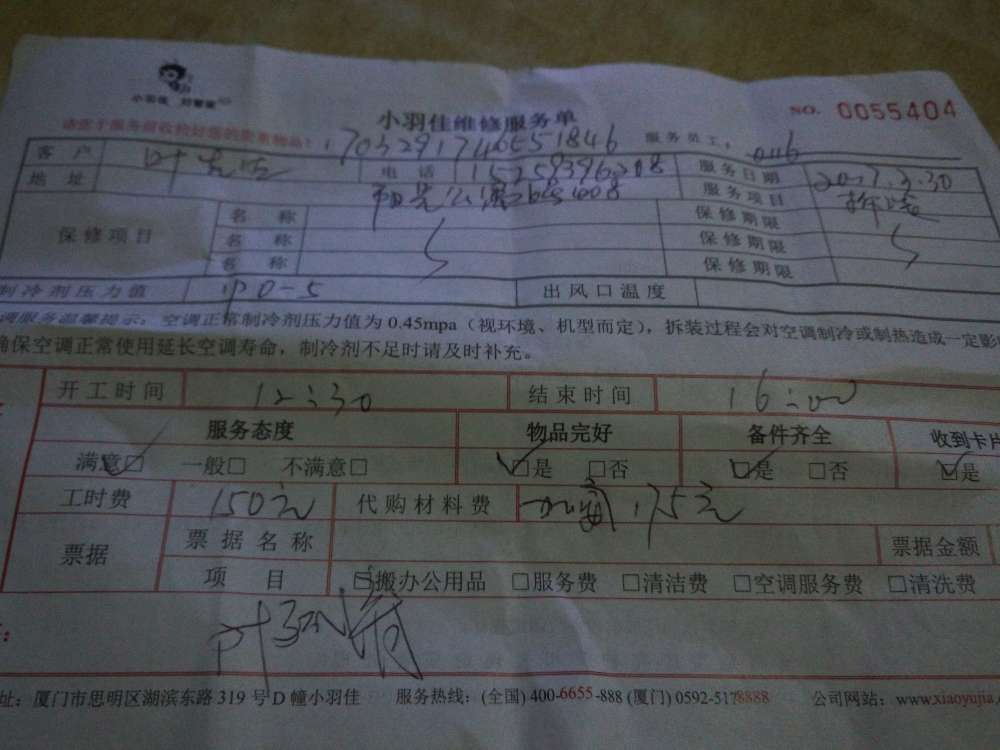 小羽佳
小羽佳维修服务单
NO. 0055404
1703291746551846
服务员工： 016
客户 叶 电话 服务日期 2017.3.30
地址 阳光公寓 服务项目 拆装
保修项目 名称 保修期限
名称 保修期限
名称 保修期限
制冷剂压力值 0-5 出风口温度
调服务温馨提示：空调正常制冷剂压力值为 0.45mpa（视环境、机型而定），拆装过程会对空调制冷或制热造成一定影
确保空调正常使用延长空调寿命，制冷剂不足时请及时补充。
开工时间 12:30 结束时间 16:00
服务态度 物品完好 备件齐全 收到卡片
满意□ 一般□ 不满意□ □是 □否 □是 □否 □是
工时费 150元 代购材料费 175元
票据 票据名称 票据金额
项目 □搬办公用品 □服务费 □清洁费 □空调服务费 □清洗费
址：厦门市思明区湖滨东路 319 号 D 幢小羽佳 服务热线：(全国) 400-6655-888 (厦门) 0592-5178888 公司网站：www.xiaoyujia.